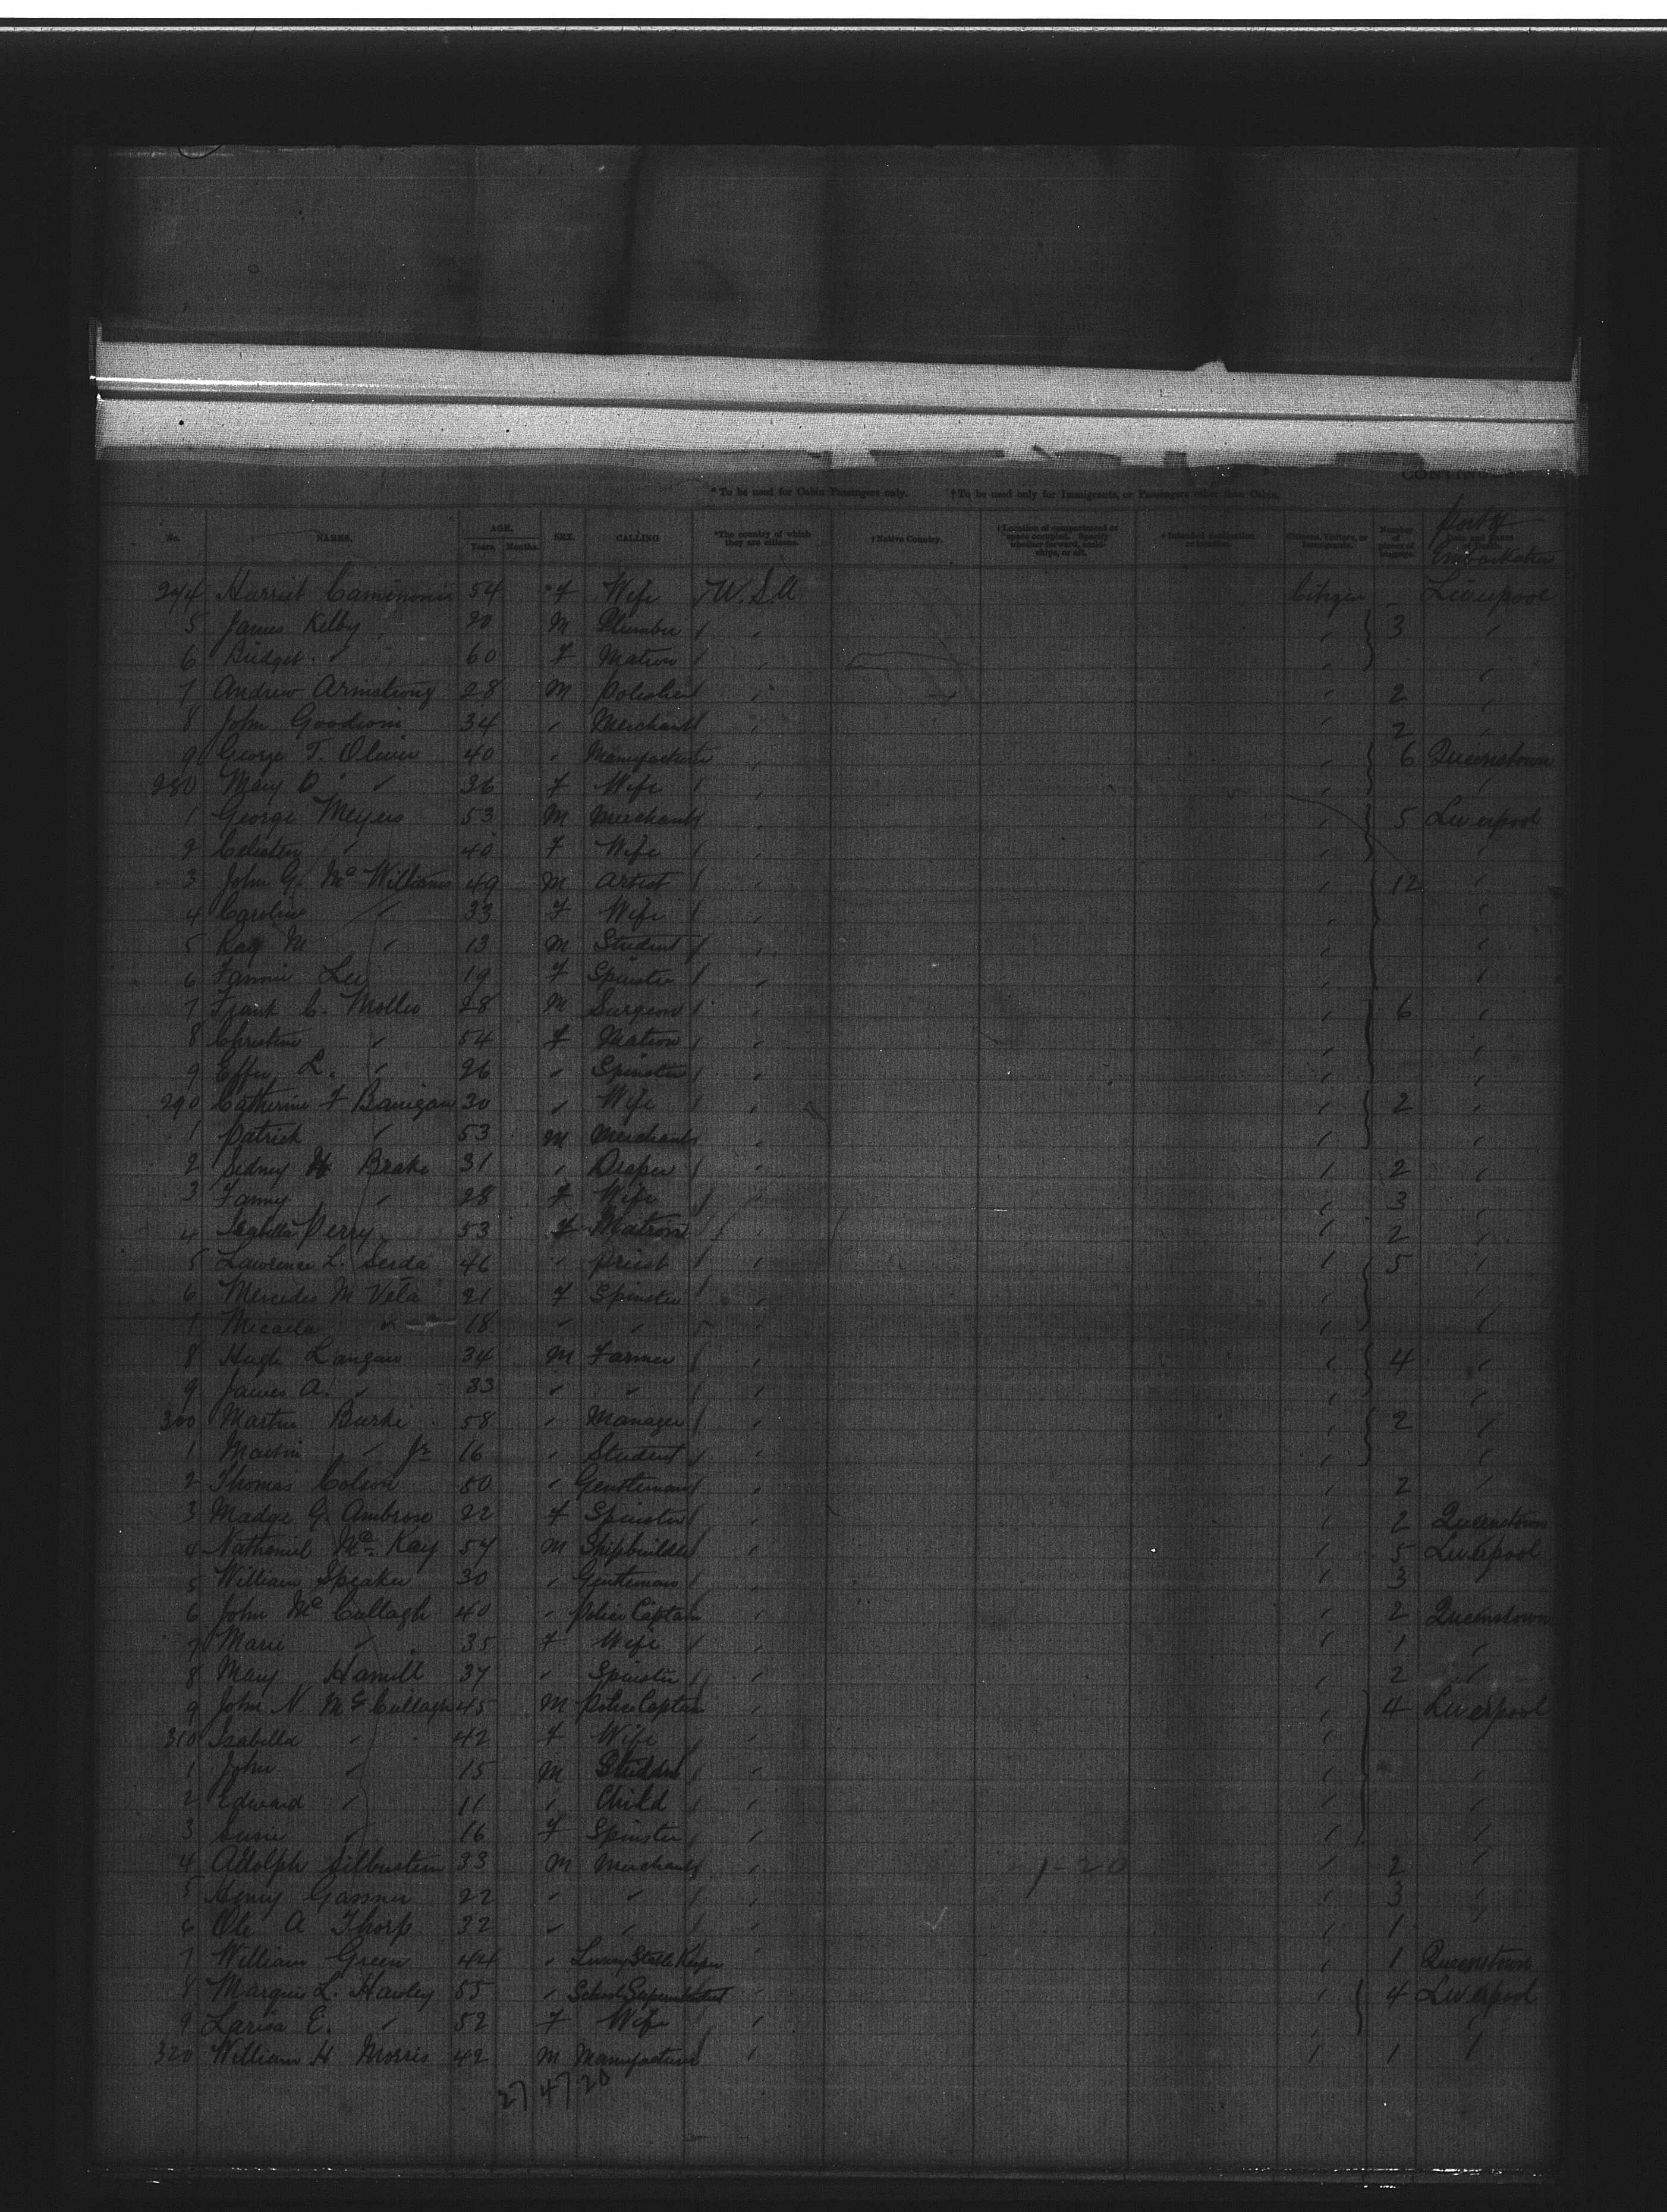 CONTINUED
* To be used for Cabin Passengers only. † To be used only for Immigrants, or Passengers other than Cabin.
No. NAMES. AGE. Years. Months. SEX. CALLING *The country of which they are citizens. † Native Country. † Location of compartment or space occupied. Specify whether forward, amidships, or aft. † Intended destination or location. Citizens, Visitors, or Immigrants. Number of pieces of baggage. Port of Embarkation
274 Harriet 54 F Wife U.S.A Citizen Liverpool
5 James Kelby 20 M Plumber 3
6 Bridget 60 F Matron
7 Andrew Armstrong 28 M Polisher 2
8 John Goodwin 34 Merchant 2
9 George T. Oliver 40 Manufacturer 6 Queenstown
280 Mary D 36 F Wife
1 George Meyers 53 M Merchant 5 Liverpool
2 40 F Wife
3 John G. McWilliams 49 M Artist 12
4 Caroline 33 F Wife
5 Ray M 13 M Student
6 Fannie Lee 19 F Spinster
7 Frank C. 28 M Surgeon 6
8 Christine 54 F Matron
9 Effie L. 26 Spinster
290 Catherine F Banigan 30 Wife 2
1 Patrick 53 M Merchant
2 Sidney H Brake 31 Draper 2
3 Fanny 28 F Wife 3
4 Isabella Perry 53 F Matron 2
5 Lawrence L. Serda 46 Priest 5
6 Mercedes M Vela 21 F Spinster
7 Micaela 18
8 Hugh Langan 34 M Farmer 4
9 James A. 33
300 Martin Burke 58 Manager 2
1 Martin Jr 16 Student
2 Thomas Colson 50 Gentleman 2
3 Madge G. Ambrose 22 F Spinster 2 Queenstown
4 Nathaniel McKay 54 M Shipbuilder 5 Liverpool
5 William Speaker 30 Gentleman 3
6 John McCullagh 40 Police Captain 2 Queenstown
7 Marie 35 F Wife 1
8 Mary Hamill 37 Spinster 2
9 John N. McCullagh 45 M Police Captain 4 Liverpool
310 Isabella 42 F Wife
1 John 15 M Student
2 Edward 11 Child
3 Susie 16 F Spinster
4 Adolph Silberstein 33 M Merchant 1-20 2
5 Henry Gassner 22 3
6 Ole A Thorp 32 1
7 William Green 44 Livery Stable Keeper 1 Queenstown
8 Marquis L. Hawley 55 School Superintendent 4 Liverpool
9 Larisa E. 52 F Wife
320 William H Morris 42 M Manufacturer 1
27 47 20